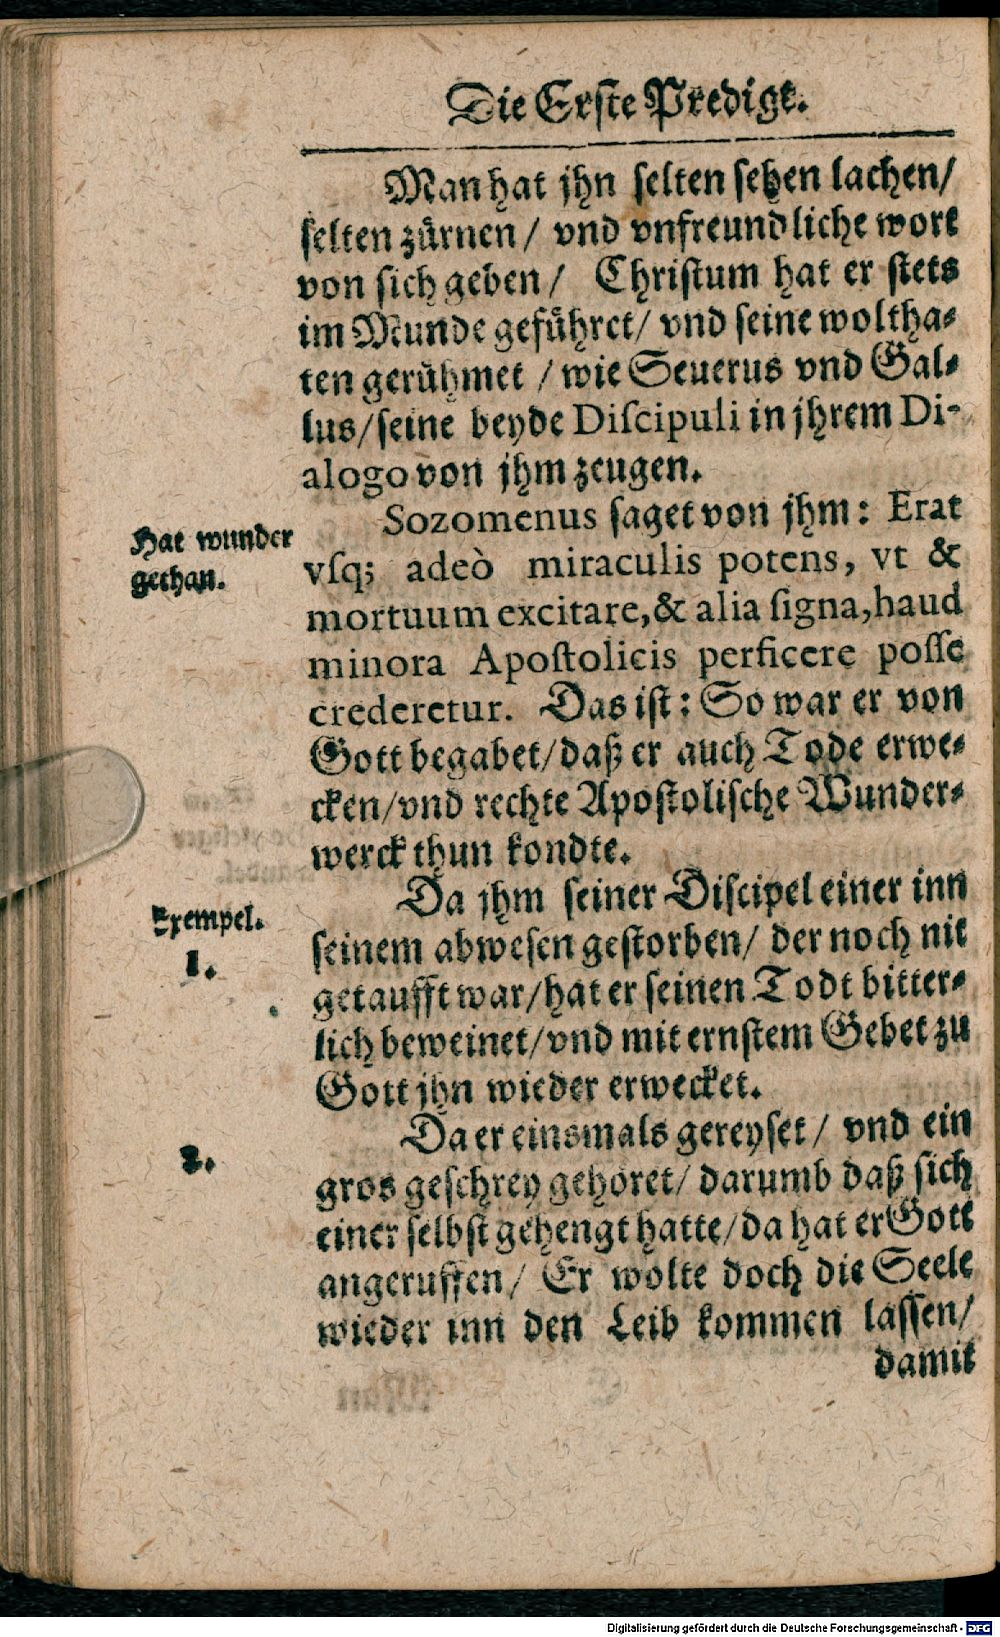 Die Erſte Predigt.
Man hat jhn ſelten ſehen lachen/
ſelten zürnen/ vnd vnfreundliche wort
von ſich geben/ Chriſtum hat er ſtets
im Munde geführet/ vnd ſeine woltha⸗
ten gerühmet/ wie Seuerus vnd Gal⸗
lus/ ſeine beyde Diſcipuli in jhrem Di-
alogo von jhm zeugen.
Hat wunder
gethan.
Sozomenus ſaget von jhm: Erat
vſq; adeò miraculis potens, vt &
mortuum excitare, & alia ſigna, haud
minora Apoſtolicis perficere poſſe
crederetur. Das iſt: So war er von
Gott begabet/ daß er auch Tode erwe⸗
cken/ vnd rechte Apoſtoliſche Wunder⸗
werck thun kondte.
Exempel.
1.
Da jhm ſeiner Diſcipel einer inn
ſeinem abweſen geſtorben/ der noch nit
getaufft war/ hat er ſeinen Todt bitter⸗
lich beweinet/ vnd mit ernſtem Gebet zu
Gott jhn wieder erwecket.
2.
Da er einsmals gereyſet/ vnd ein
gros geſchrey gehöret/ darumb daß ſich
einer ſelbſt gehengt hatte/ da hat er Gott
angeruffen/ Er wolte doch die Seele
wieder inn den Leib kommen laſſen/
damit
Digitalisierung gefördert durch die Deutsche Forschungsgemeinschaft - DFG